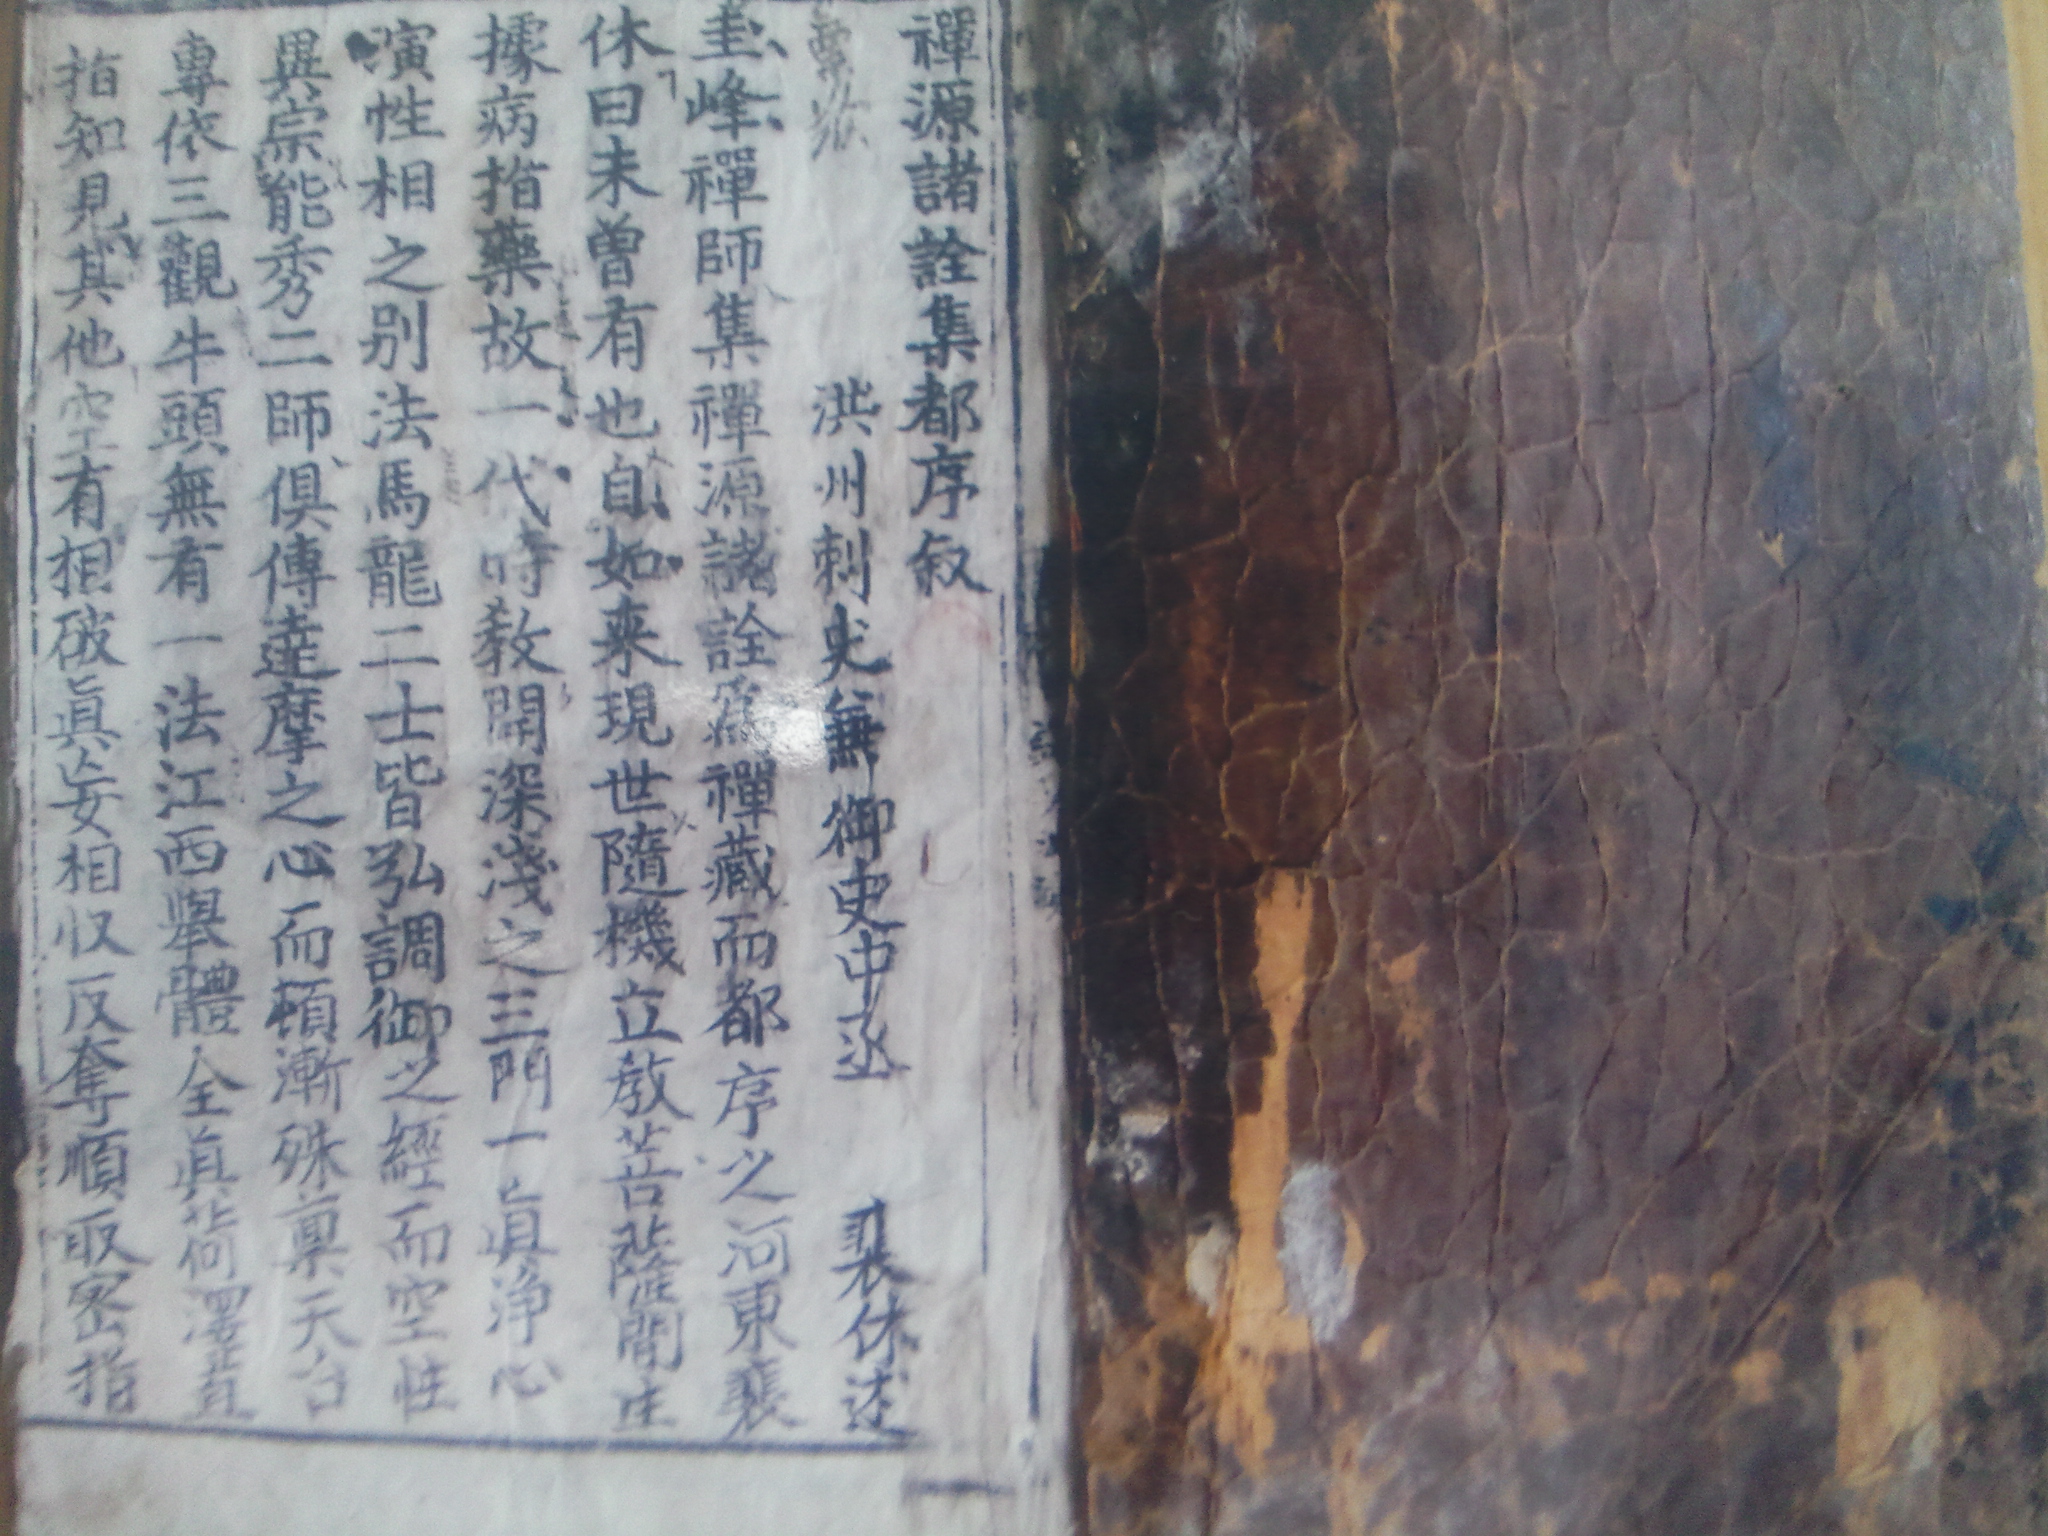 禪源諸詮集都序叙
洪州刺史兼御史中丞 裴休述
圭峰禪師集禪源諸詮爲禪藏而都序之河東裴
休曰未曾有也自如来現世隨機立敎菩薩間生
據病指藥故一代時敎開深淺之三門一眞淨心
演性相之别法馬龍二士皆弘調御之經而空性
異宗能秀二師俱傳達摩之心而頓漸殊禀天台
專依三觀牛頭無有一法江西擧體全眞荷澤直
指知見其他空有相破眞妄相收反奪順取密指